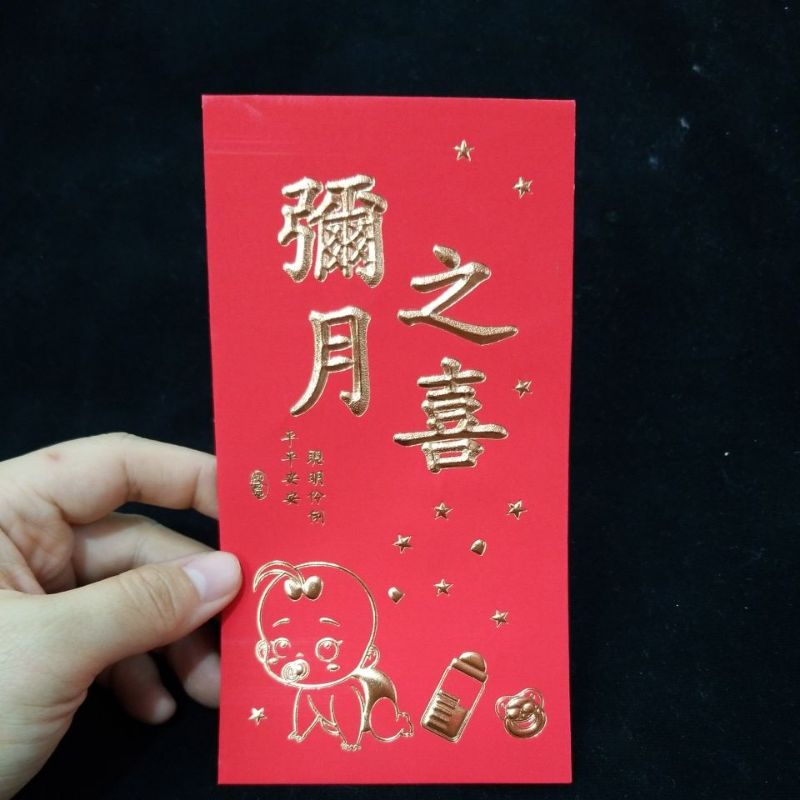 彌月
之喜
聰明伶俐
平平安安